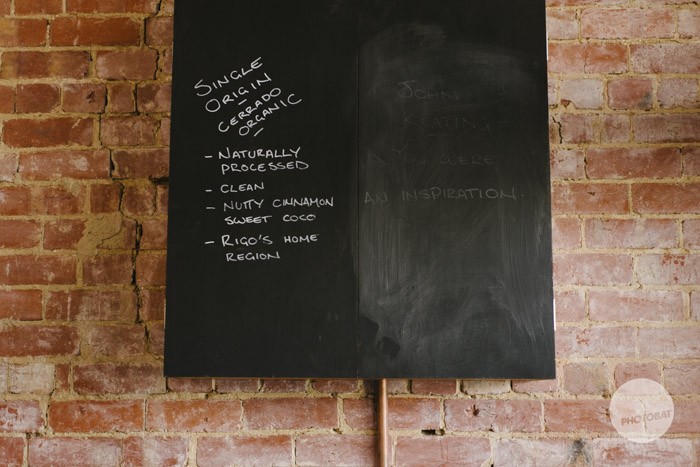 SINGLE
ORIGIN
–
CERRADO
ORGANIC
–
– NATURALLY
PROCESSED
– CLEAN
– NUTTY CINNAMON
SWEET COCO
– RIGO'S HOME
REGION
JOHN
KEATING
YOU WERE
AN INSPIRATION.
PHOTOBAT